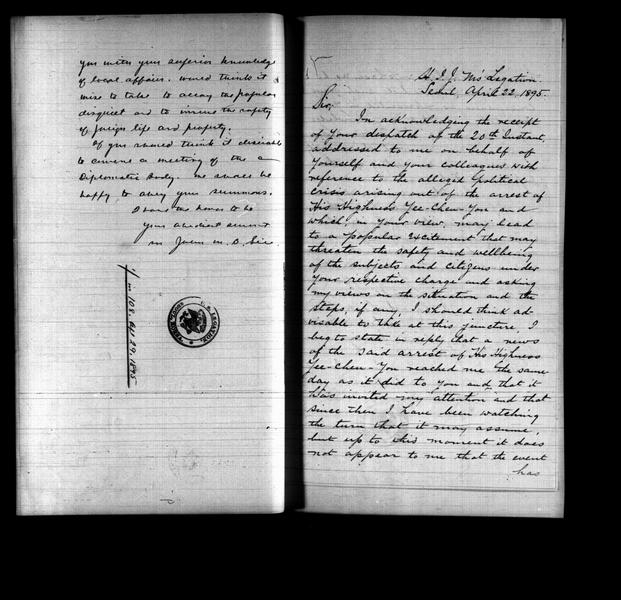 you with your superior knowledge
of local affairs. would think it
wise to take to allay the popular
disquiet and to insure the safety
of foreign life and property.
If you should think it desirable
to convene a meeting of the
Diplomatic Body. we shall be
happy to obey your summons.
I have the honor to be
Your obedient servant
1895
LEGATION
H. I. J. M's Legation.
Seoul, April 22, 1895.
Sir;
In acknowledging the receipt
of your despatch of the 20th Instant,
addressed to me on behalf of
yourself and your colleagues with
reference to the alleged political
crisis arising out of the arrest of
His Highness Yee-Chun-Yon and
which, in your view, may lead
to a popular excitement that may
threaten the safety and wellbeing
of the subjects and citizens under
your respective charge and asking
my views on the situation and the
steps, if any, I should think ad
visable to take at this juncture, I
beg to state in reply that a news
of the said arrest of His Highness
Yee-Chun-You reached me the same
day as it did to you and that it
has invited my attention and that
since then I have been watching
the turn that it may assume,
but up to this moment it does
not appear to me that the event
has